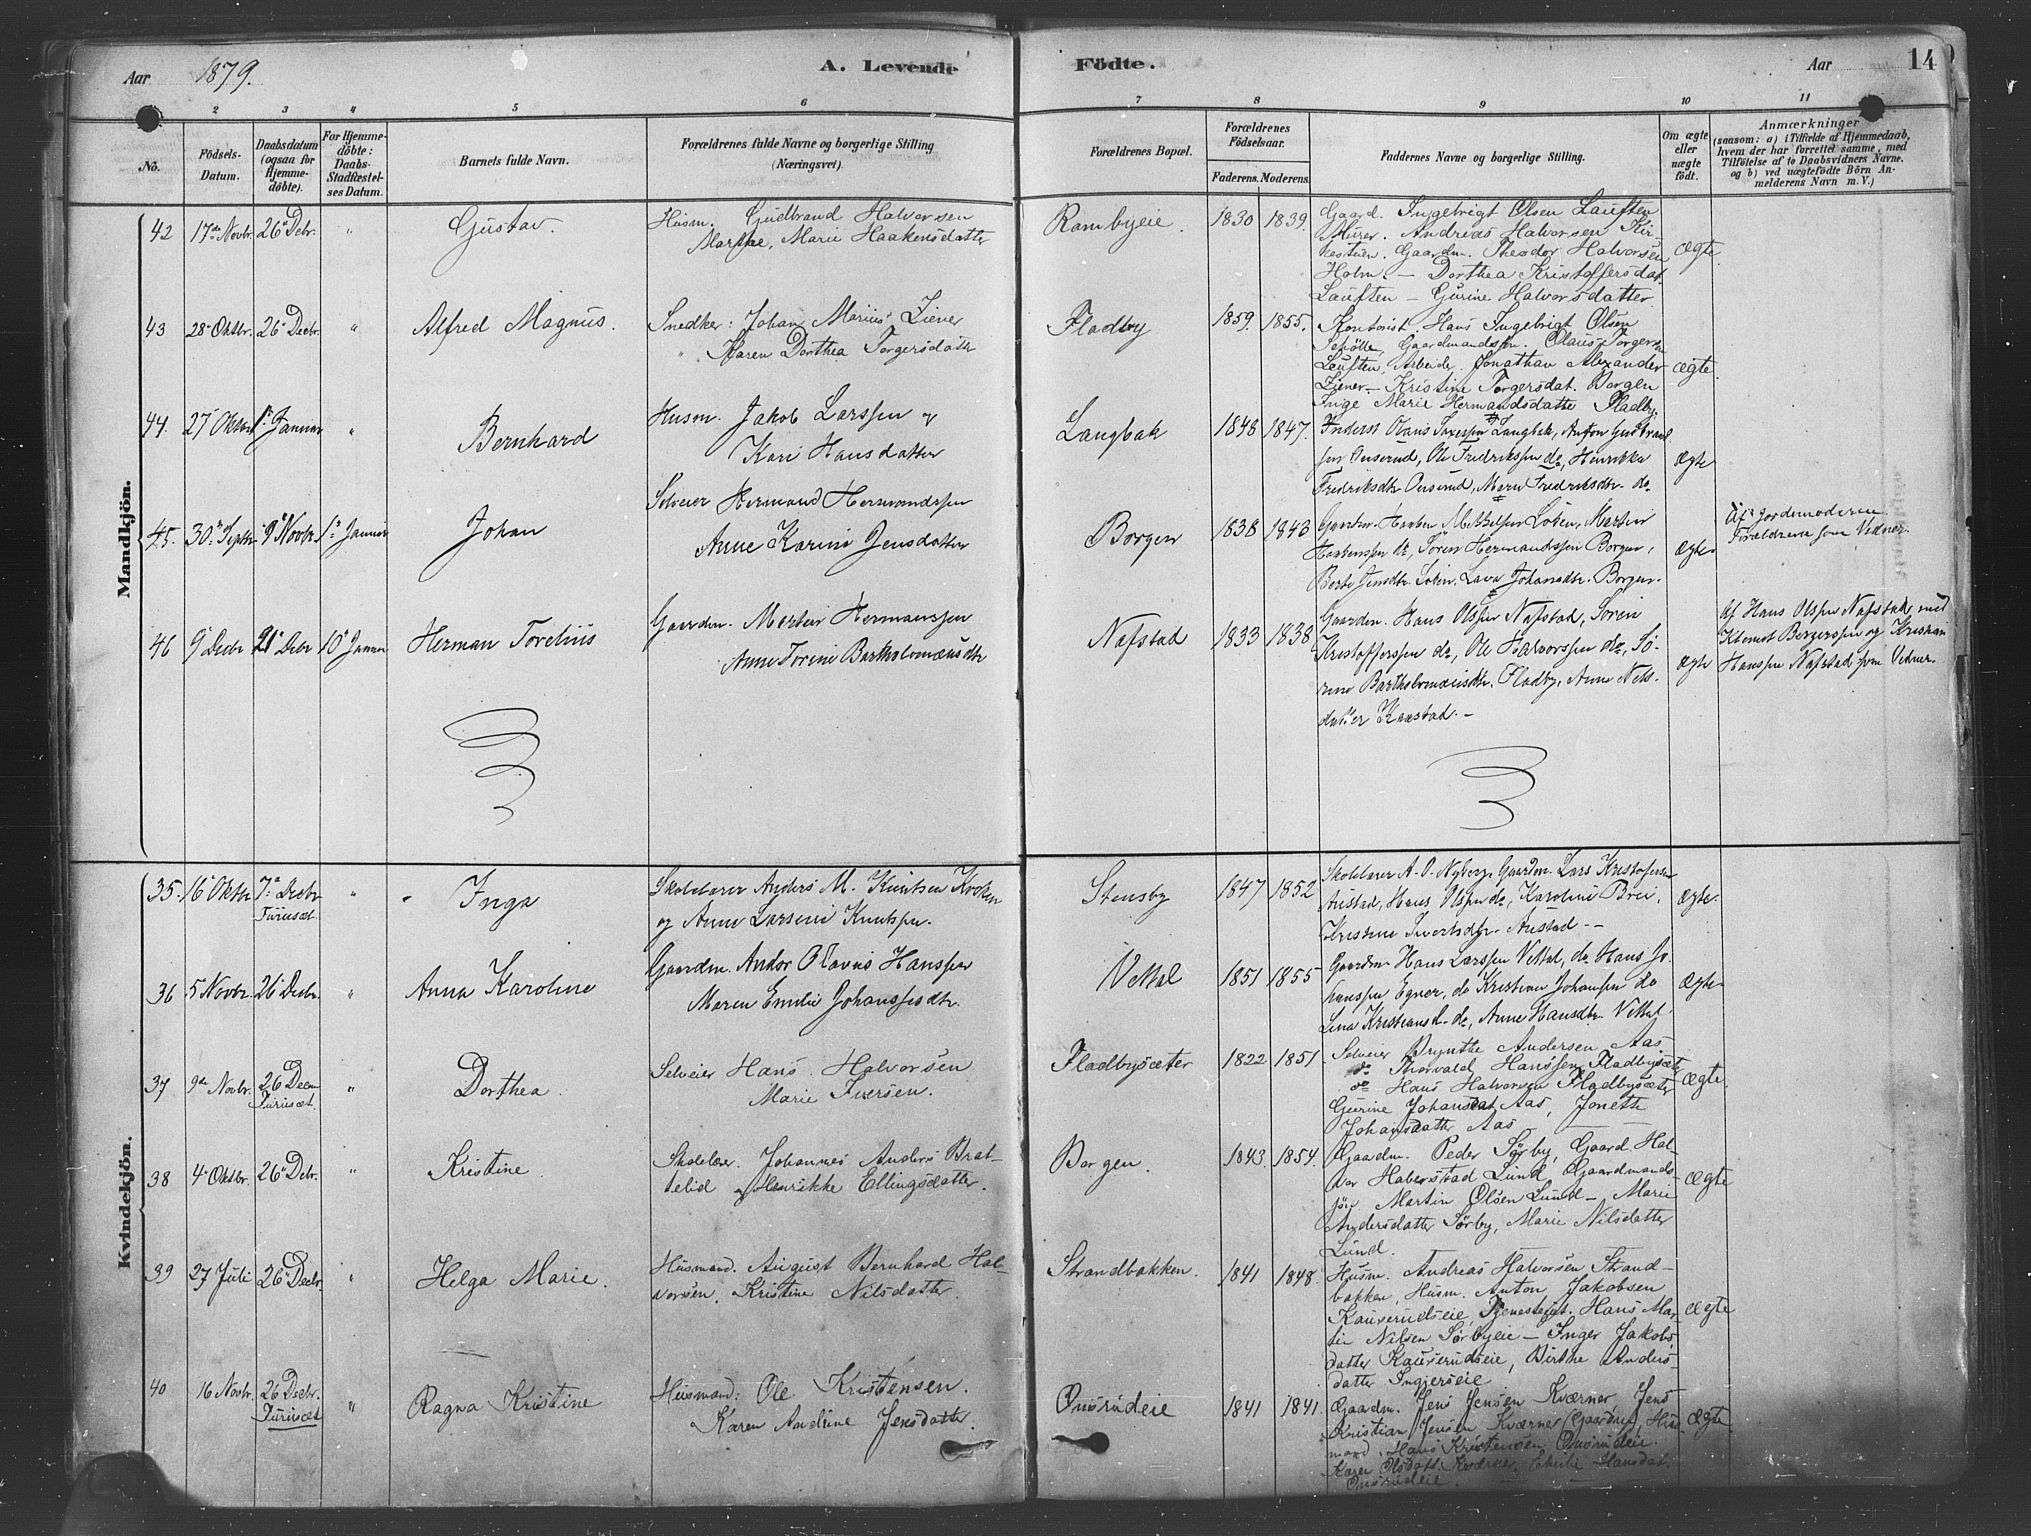 Aar 1879. A. Levende Fødte. Aar 14
2 3 4 5 6 7 8 9 10 11
No.
Födsels-Datum.
Daabsdatum (ogsaa for Hjemme-döbte).
For Hjemme-döbte: Daabs-Stadfæstel-ses Datum.
Barnets fulde Navn.
Forældrenes fulde Navne og borgerlige Stilling (Næringsvei).
Forældrenes Bopæl.
Forældrenes Födselsaar.
Faderens. Moderens.
Faddernes Navne og borgerlige Stilling.
Om ægte eller uægte födt.
Anmærkninger
(saasom: a) i Tilfælde af Hjemmedaab, hvem der har forrettet samme, med Tilföielse af to Daabsvidners Navne. og b) ved uægtefödte Börn An-melderens Navn m. V.)
Mandkjön.
42 17de Novbr. 26 Debr. " Gustav.
Husm. Gudbrand Halvorsen
Marthe Marie Haakensdatter
Rambyeie. 1830 1839.
Gaard. Ingebrigt Olsen Lauften
Murer. Andreas Halvorsen Kir-
kestuen. Gaardm. Theodor Halvorsen
Holm. — Dorthea Kristoffersdat.
Lauften — Gurine Halvorsdatter
ægte.
43 28 Oktbr. 26 Decbr. " Alfred Magnus.
Snedker: Johan Marius Ziener
" Karen Dorthea Torgersdatter
Fladby 1859. 1855.
Kontorist. Hans Ingebrigt Olsen
Gaardmandssøn. Olaus Torgersen
Lauften, Arbeide. Jonathan Alexander
Ziener — Kristine Torgersdat. Borgen
Inge Marie Hermandsdatte Fladby.
ægte.
44. 27 Oktbr 1 Januar " Bernhard
Husm. Jakob Larssen og
Kari Hansdatter
Langbak 1848 1847.
Inderst Langbak, Anton Gudbrand
sen Onsrud, Ole Fredrikssen do, Henrikke
Fredriksdtr Onsrud, Maren Fredriksdtr. do.
Ægte
45. 30 Septbr 9 Novbr 1 Januar Johan
Selveier Hermand Hermandssen
Anne Karine Jensdatter
Borgen 1838 1843
Gaardm. Haaken Løken, Martin
Haakenssen do, Søren Hermandssen Borgen,
Berte Jensdtr. Løken, Lava Johansdtr. Borgen.
Ægte
Af Jordemoderen
Forældrene som Vidner.
46 9 Decbr 21 Debr 10 Januar Herman Torelius
Gaardm. Martin Hermanssen
Anne Torine Bartholomæusdtr
Nafstad 1833 1838
Gaardm. Hans Olssen Nafstad, Søren
Kristofferssen do, Ole Halvorssen do, Sø-
rine Bartholomæusdtr. Fladby, Anne Nils-
datter Kaustad. —
Ægte
Af Hans Olssen Nafstad med
Klemet Bergerssen og Kristian
Hanssen Nafstad som Vidner.
Kvindekjön.
35. 16 Oktbr 7 Decbr Furuset " Inga
Skolelærer Anders M. Knutsen Kroken
og Anne Larsine Knutssen.
Stensby 1847 1852
Skolelærer A. O. Nyborg, Gaardm. Lars Kristofersen
Austad, Hans Olssen do, Karoline Brei,
Kristine Austad. —
Ægte.
36 5 Novbr. 26 Decbr. " Anna Karoline
Gaardm. Andor Olavus Hanssen
Maren Emilie Johanssesdtr.
Vettal 1851 1855
Gaardm Hans Larssen Vettal, do Hans Jo-
hanssen Egner, do Kristian Johanssen do
Lina Kristiansd. do, Anne Hansdtr. Vettal.
Ægte
37 9de Novbr. 26 Decm Furuset. " Dorthea.
Selveier Hans Halvorsen
Marie Iversen.
Fladbysæter 1822 1851.
Selveier Brynthe Andersen Aas
do Thorvald Hanssen Fladbysæter
do Hans Halvorsen Fladbysæter
Gurine Johansdat Aas, Jonette
Johansdatter Aas
Ægte.
38 4 Oktbr. 26 Debr. " Kristine
Skolelær. Johannes Anders Brat-
telid og Henrikke Ellingsdatter.
Borgen. 1843 1854.
Gaardm. Peder Sørby, Gaard Hal-
vor Haberstad Lund Gaardmands-
søn Martin Olsen Lund — Marie
Andersdatter Sørby, Marie Nilsdatter
Lund.
Ægte
39 27 Juli 26 Decbr " Helga Marie.
Husmand. August Bernhard Hal-
vorsen. Kristine Nilsdatter.
Strandbakken. 1841 1848.
Husm. Andreas Halvorsen Strand-
bakken, Husm. Anton Jakobsen
Kauserudseie, Tjenestegut. Hans Mar-
tin Nilsen Sørbyeie — Inger Jakobs
datter Kauserudseie, Birthe Anders-
datter Ingierseie
Ægte
40 16 Novbr. 26 Decbr. Furuset " Ragna Kristine
Husmand: Ole Kristensen.
Karen Andrine Jensdatter.
Onsrudeie 1841 1841.
Gaardm. Jens Jensen Kværner, Jens
Kristian Jensen Kværner (Gaardm), Hus-
mand. Hans Kristensen Onsrudeie.
Karen Olsdatt. Kværner, Emilie Hansdat.
Onsrudeie.
Ægte